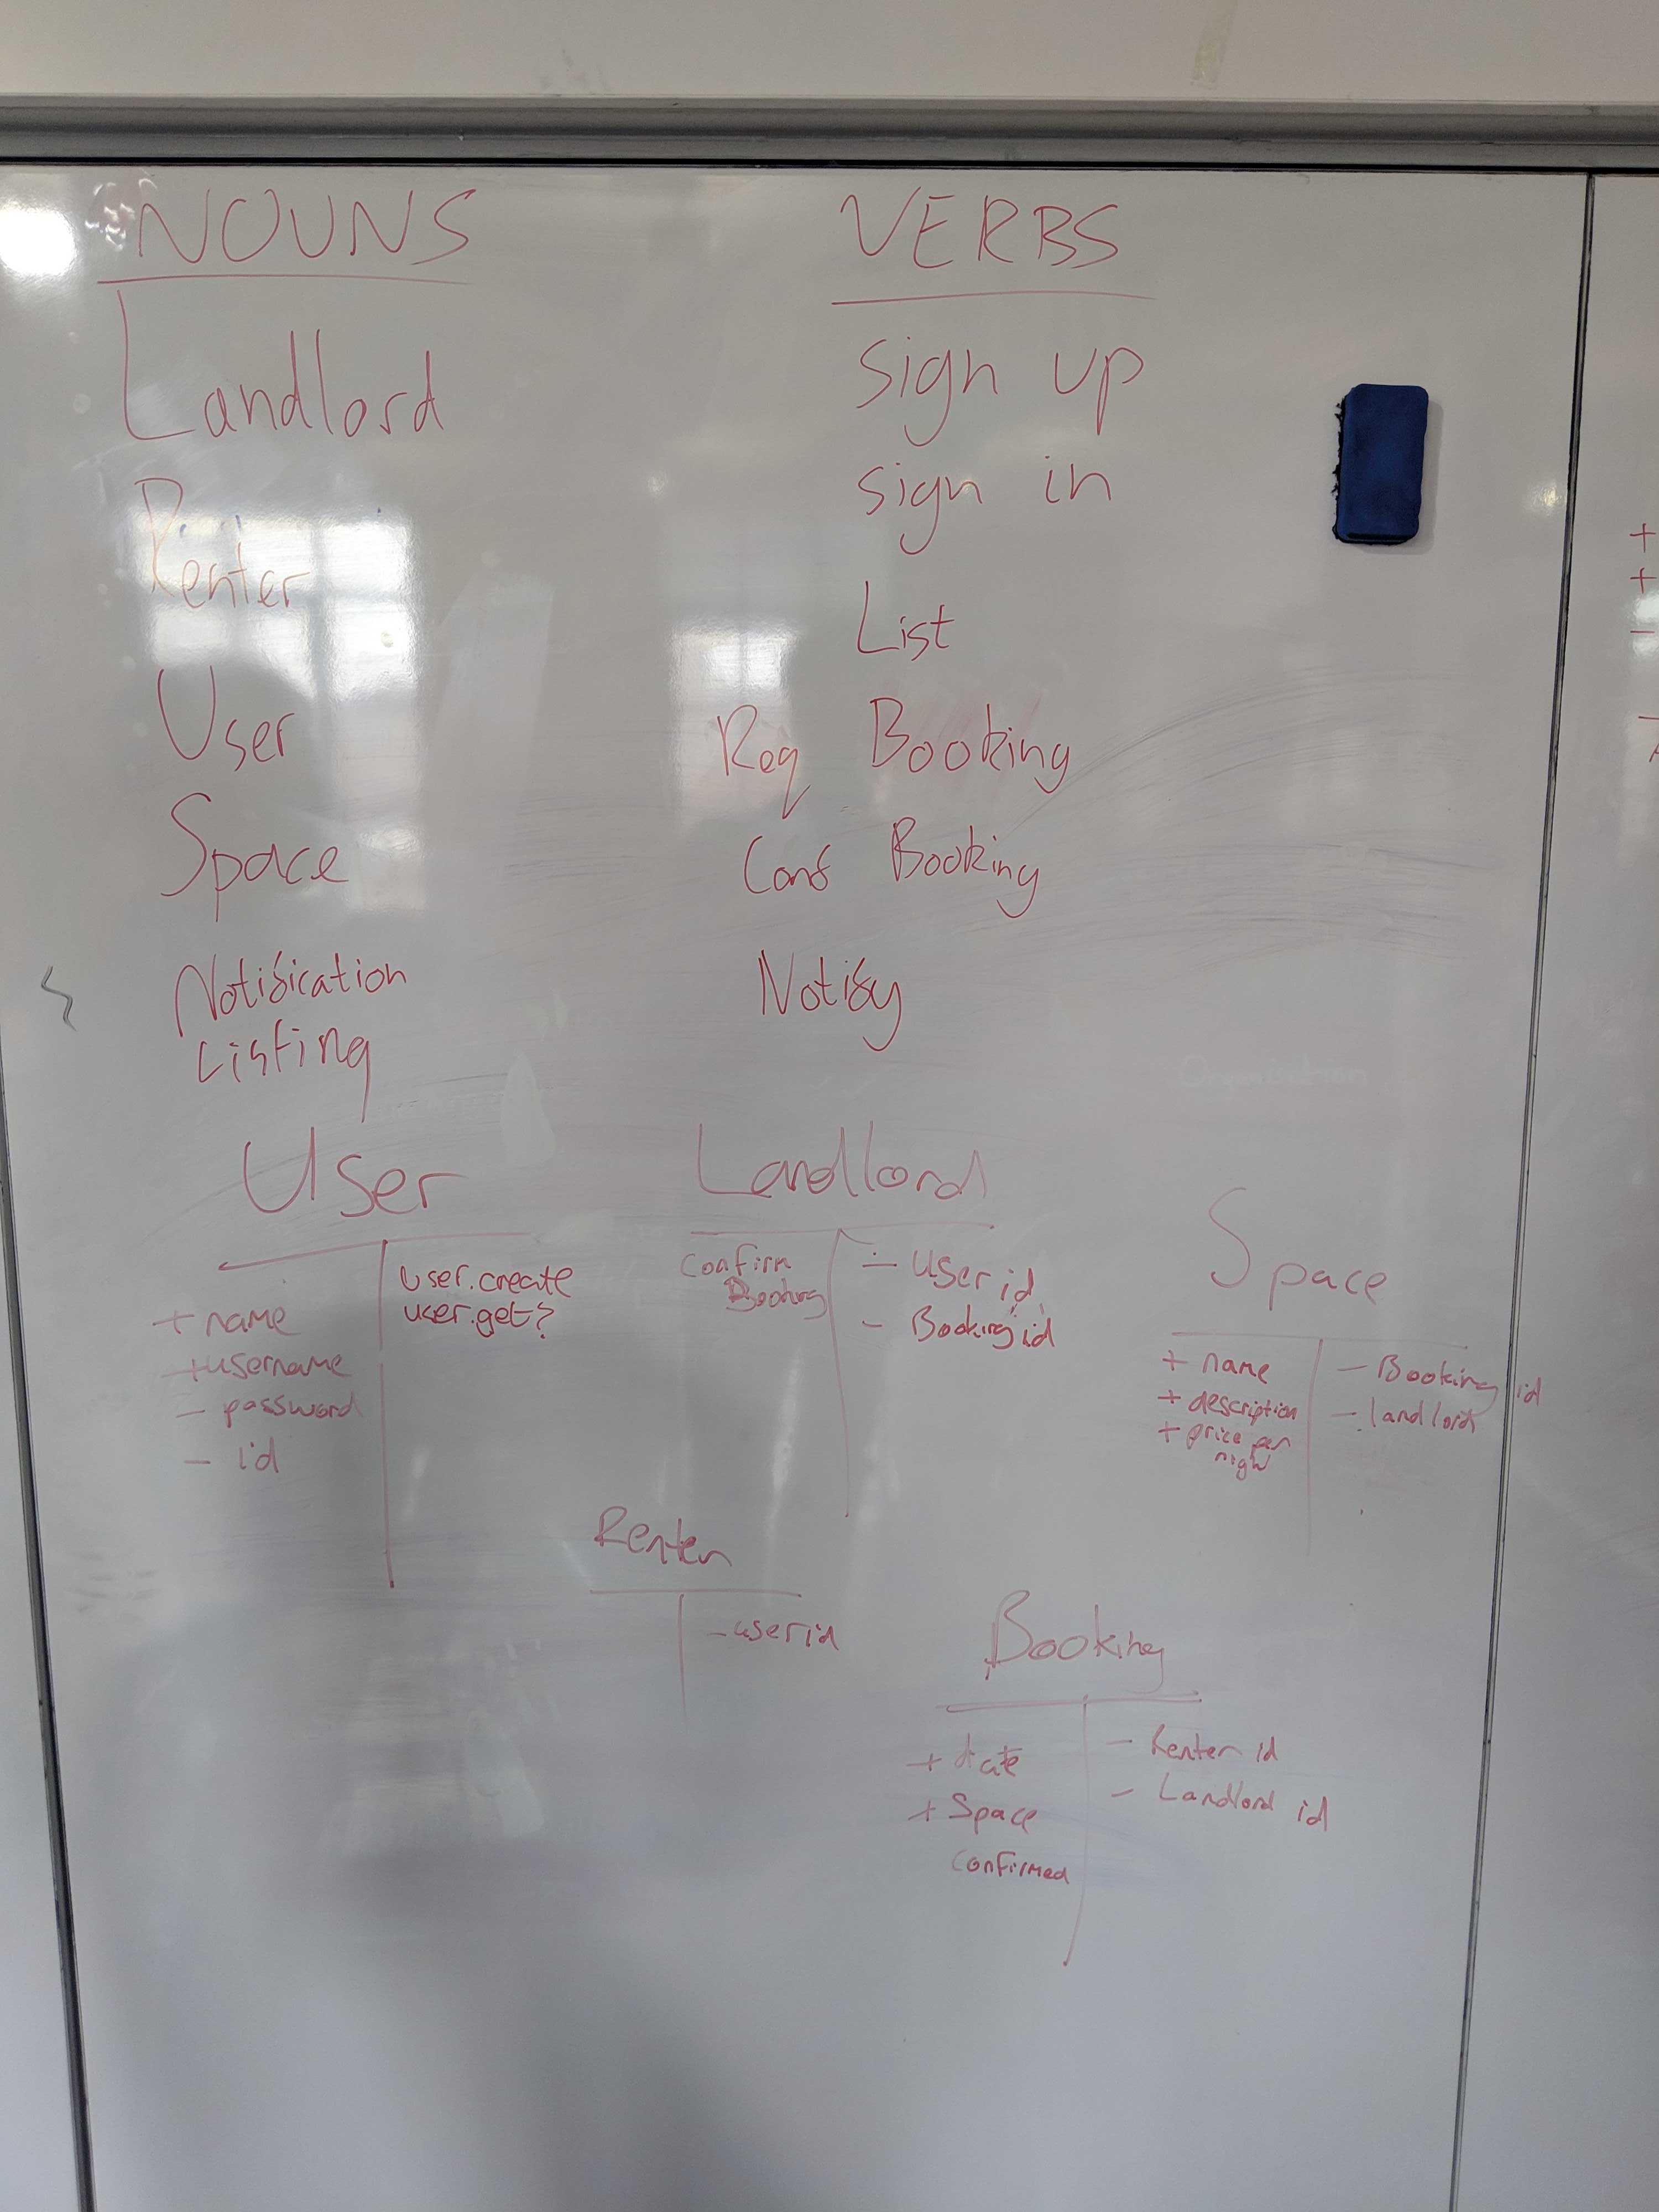 NOUNS
Landlord
Renter
User
Space
Notification
Listing
VERBS
sign up
sign in
List
Req Booking
Conf Booking
Notify
User
+ name
+ username
- password
- id
user.create
user.get?
Landlord
Confirm
Booking
- User id
- Booking id
Space
+ name
+ description
+ price per
- Booking id
- landlord
Renter
- user id
Booking
+ date
+ Space
confirmed
- Renter id
- Landlord id
+
+
-